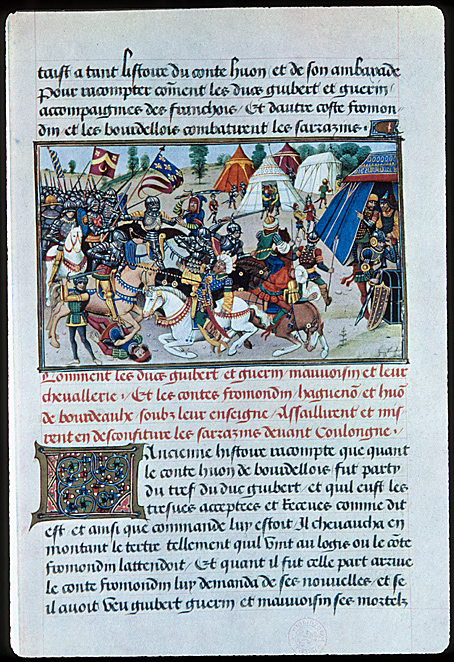 taist a tant listoire du conte huon et de son ambaxade
Pour racompter coment les ducs guibert et guerin
acompaignies des franchois / Et dautre coste fromon-
din et les bourdellois combatirent les sarrazins.
Comment les ducs guibert et guerin mauvoisin et leur
chevallerie . Et les contes fromondin / haguenon et huon
de bourdeaulx soubz leur enseigne / Assaillirent et mi-
rent en desconfiture les sarrazins devant Coulongne .
L Ancienne histoire racompte que quant
le conte huon de bourdellois fut party
du tref du duc guibert / et quil eust les
tresves acceptees et Receues comme dit
est et ainsi que commande luy estoit Il chevaucha en
montant le tertre tellement quil vint au logis ou le cote
fromondin lattendoit / Et quant il fut celle part arrive
le conte fromondin luy demanda de ses nouvelles / et se
il avoit veu guibert guerin et mauvoisin ses mortelz